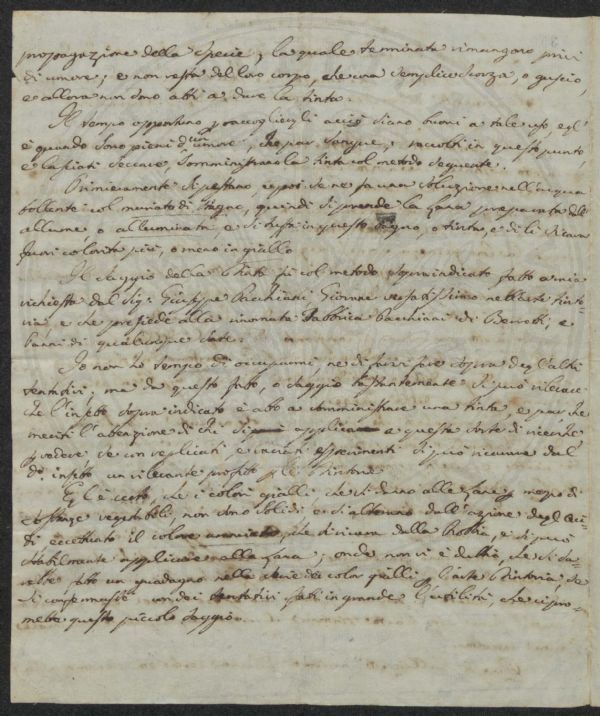 propagazione della specie, la quale terminata rimangono privi
di umore, e non resta del loro corpo, che una semplice scorza, o guscio,
e allora non sono atti a dare la tinta.
Il tempo opportuno p raccoglierli acciò siano buoni a tale uso, egl'
è quando sono pieni d'un umore, che par sangue; raccolti in questo punto,
e lasciati seccare, somministrano la tinta col metodo seguente.
Primieramente si pestano e poi se ne fa una soluzione nell'acqua
bollente col muriato di stagno, quindi si prende la lana preparata coll'
allume o alluminata e si tuffa in questo bagno, o tinta, e di lì si cava
fuori colorita più, o meno in giallo
Il saggio della tinta fu col metodo sopraindicato fatto a mia
richiesta dal Sig: Giuseppe Pacchiani, Giovane versatissimo nell'arte tinto-
ria, e che presiede alla rinomata Fabbrica Pacchiani di Berretti, e
Panni di qualunque sorte.
Io non ho tempo di occuparmi, ne di farvi fare sopra degl'altri
tentativi, ma da questo fatto, o saggio costantemente si può rilevare
che l'insetto sopra indicato è atto a somministrare una tinta, e pare che
meriti l'attenzione di chi si applica a questa sorte di ricerche
p vedere se con replicati, e variati esperimenti si può ricavare dal
d.° insetto un rilevante profitto p le Tintorie.
Egl'è certo, che i colori gialli che si danno alle Lane p mezzo di
sostanze vegetabili non sono solidi e si alterano dall'azione degl'Aci-
di eccettuato il colore che si ricava dalla Robbia, e si può
stabilmente applicare nella lana; onde non vi è dubbio, che si fa-
rebbe fatto un guadagno nella serie dei color gialli p l'arte Tintoria se
si confermasse con dei tentativi fatti in grande l'utilità, che ci pro-
mette questo piccolo saggio.